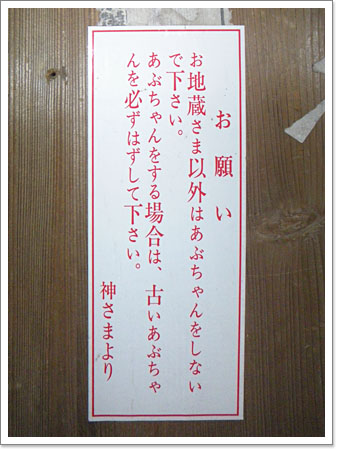 お願い
お地蔵さま以外はあぶちゃんをしない
で下さい。
あぶちゃんをする場合は、古いあぶちゃ
んを必ずはずして下さい。
神さまより